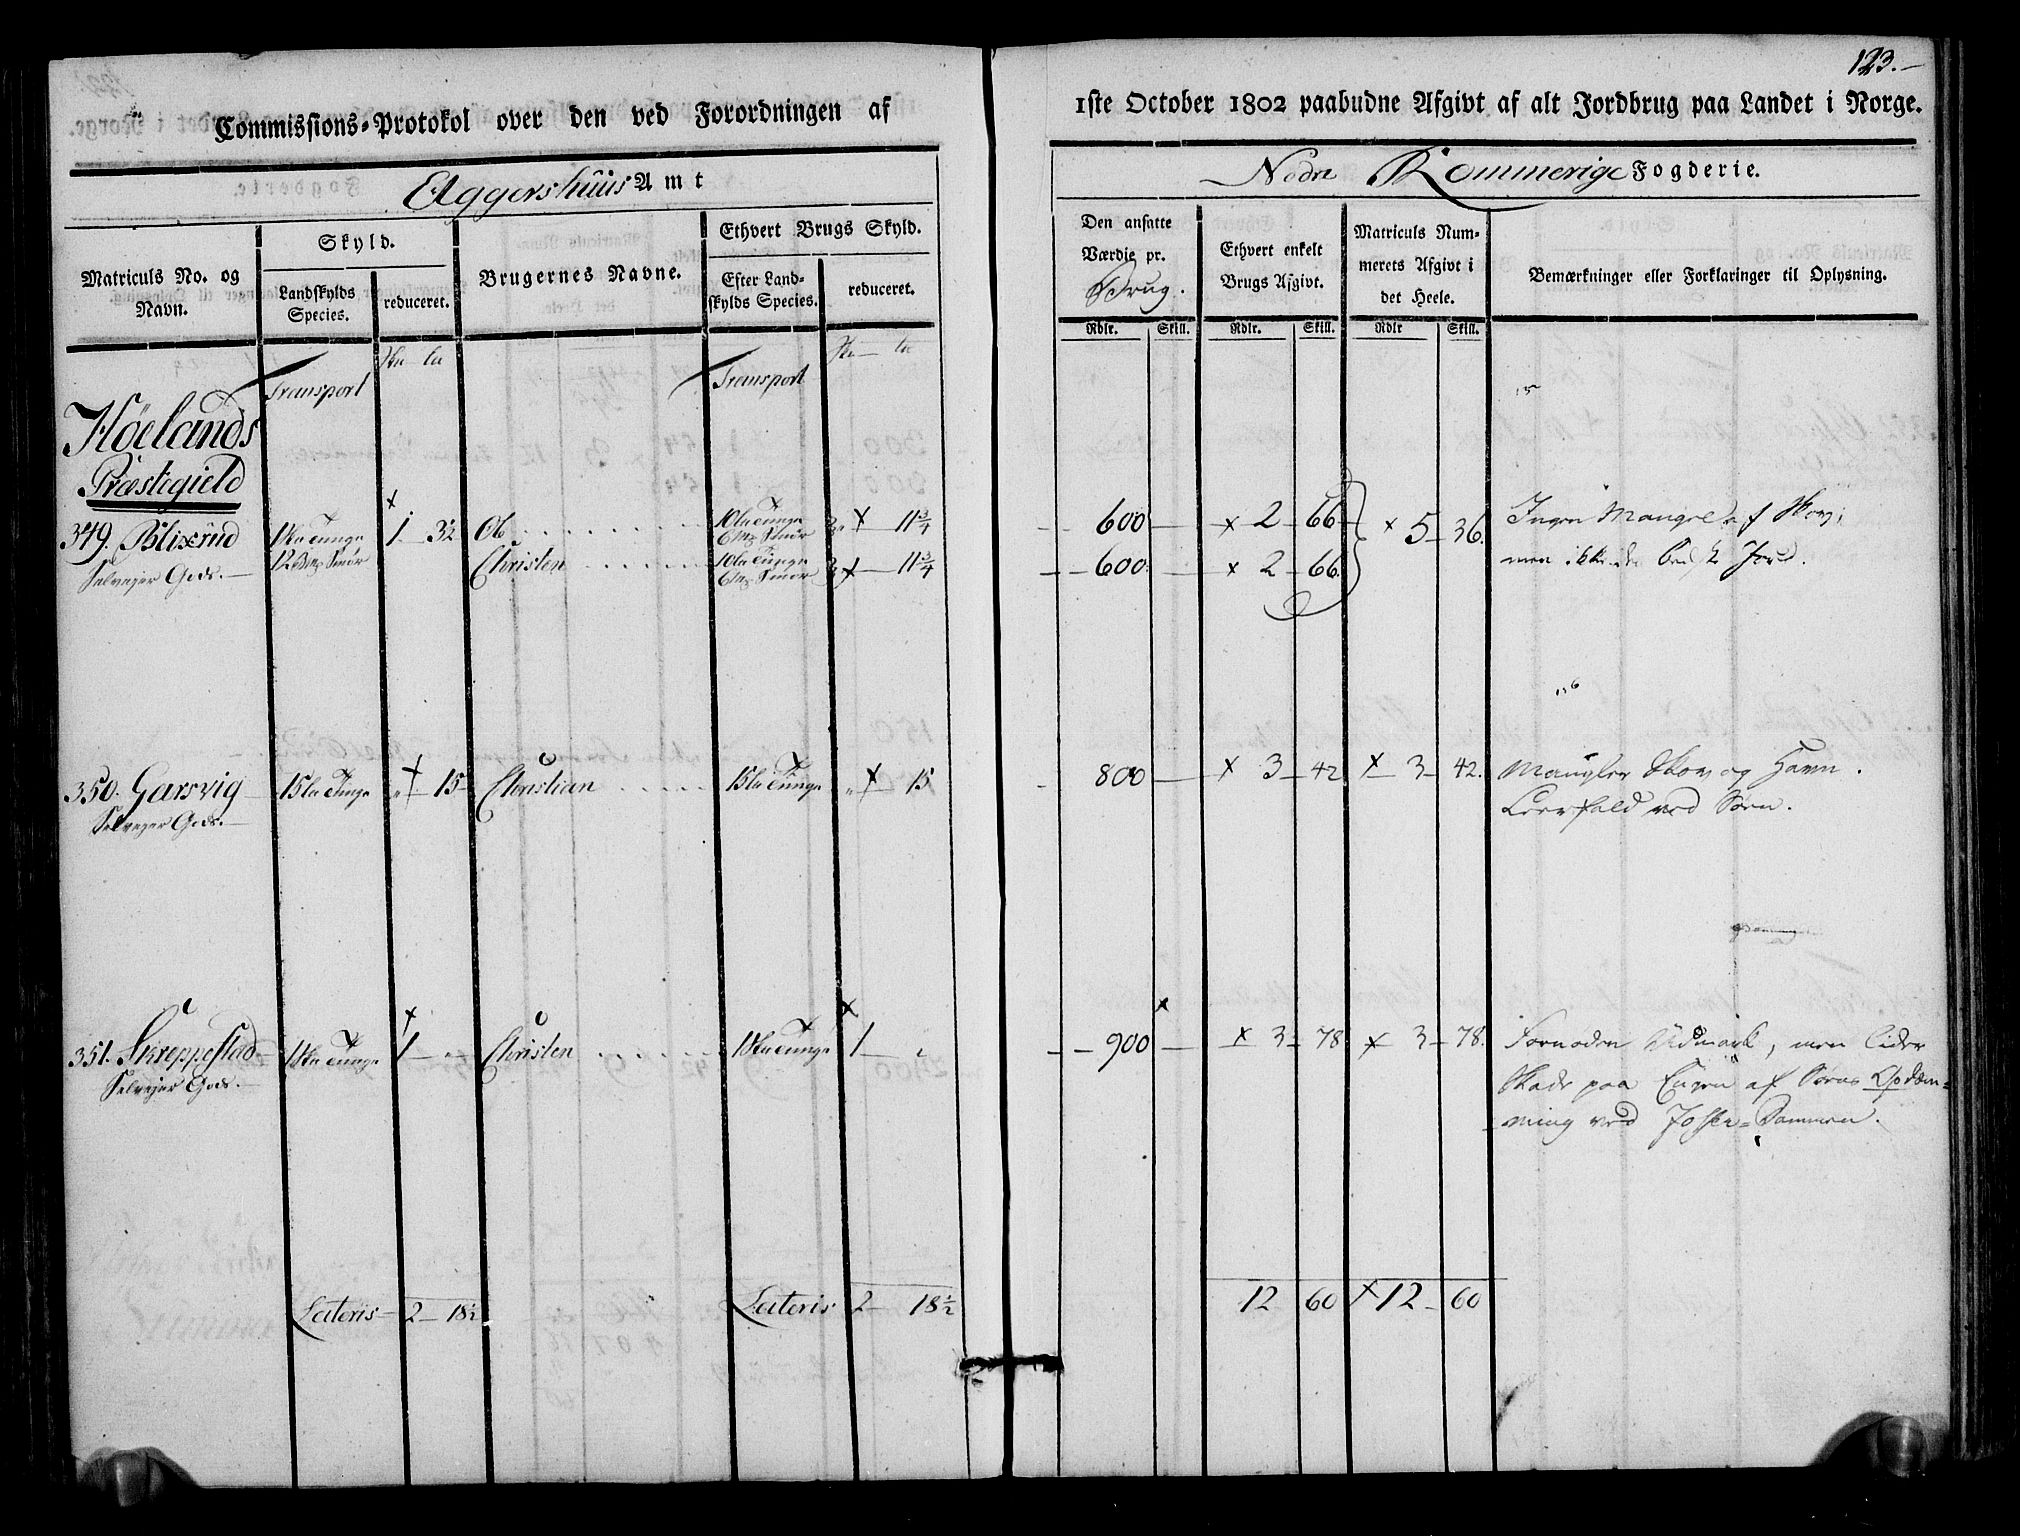 123.
Commissions-Protokol over den ved Forordningen af
1ste October 1802 paabudne Afgivt af alt Jordbrug paa Landet i Norge.
Aggershuus Amt
Nedre Rommerige Fogderie.
Matriculs No. og Navn.
Skyld.
Landskylds Species.
reduceret.
Brugernes Navne.
Ethvert Brugs Skyld.
Efter Landskylds Species.
reduceret.
Den ansatte Værdie pr. Brug.
Ethvert enkelt Brugs Afgivt.
Matriculs Nummerets Afgivt i det Heele.
Bemærkninger eller Forklaringer til Oplysning.
Rdlr. Skill. Rdlr. Skill. Rdlr Skill.
Transport Transport
Höelands
Præstegield
349. Blixrud 1 Hu Tunge 1 3½ Ole 10 lu Tunge 6 Mg Smör 11¾ 600 2 66 5 36. Ingen Mangel af Skov,
Selvejer Gods. 12 Smör Christen 10 lu Tunge 6 Mg Smör 11¾ 600 2 66 men ikke den Jord.
350. Garsvig 15 lu Tunge 15 Christian 15 lu Tunge 15 800 3 42 3 42. Mangler Skov og Havn.
Selvejer Gods. Leerfald ved Søen.
351. Skreppestad 1 Hu Tunge 1 Christen 1 Hu Tunge 1 900 3 78 3 78. Fornøden Udmark, men lider
Selvejer Gods. Skade paa Engen af Søens Opdæm=
ning ved Dammen.
Lateris 2 18½ Lateris 2 18½ 12 60 12 60